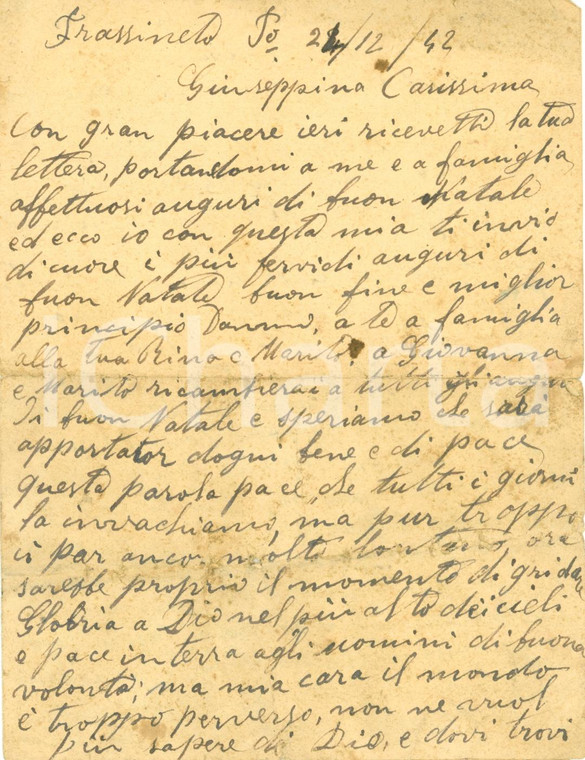 Frassineto Po 24/12/42
Giuseppina Carissima
Con gran piacere ieri ricevetti la tua
lettera, portandomi a me e a famiglia
affettuosi auguri di buon Natale
ed ecco io con questa mia ti invio
di cuore i più fervidi auguri di
buon Natale buon fine e miglior
principio Danno, a te a famiglia
alla tua Rina e Marito, a Giovanna
e Marito ricambierai a tutti gli auguri
Di buon Natale e speriamo che sarà
apportator dogni bene e di pace
questa parola pace, che tutti i giorni
la invochiamo, ma pur troppo
ci par ancor molto lontano, ora
sarebbe proprio il momento di gridar
Gloria a Dio nel più alto dei cieli
e pace in terra agli uomini di buona
volontà; ma mia cara il mondo
è troppo perverso, non ne vuol
più sapere di Dio, e dovi trovi
iCharta